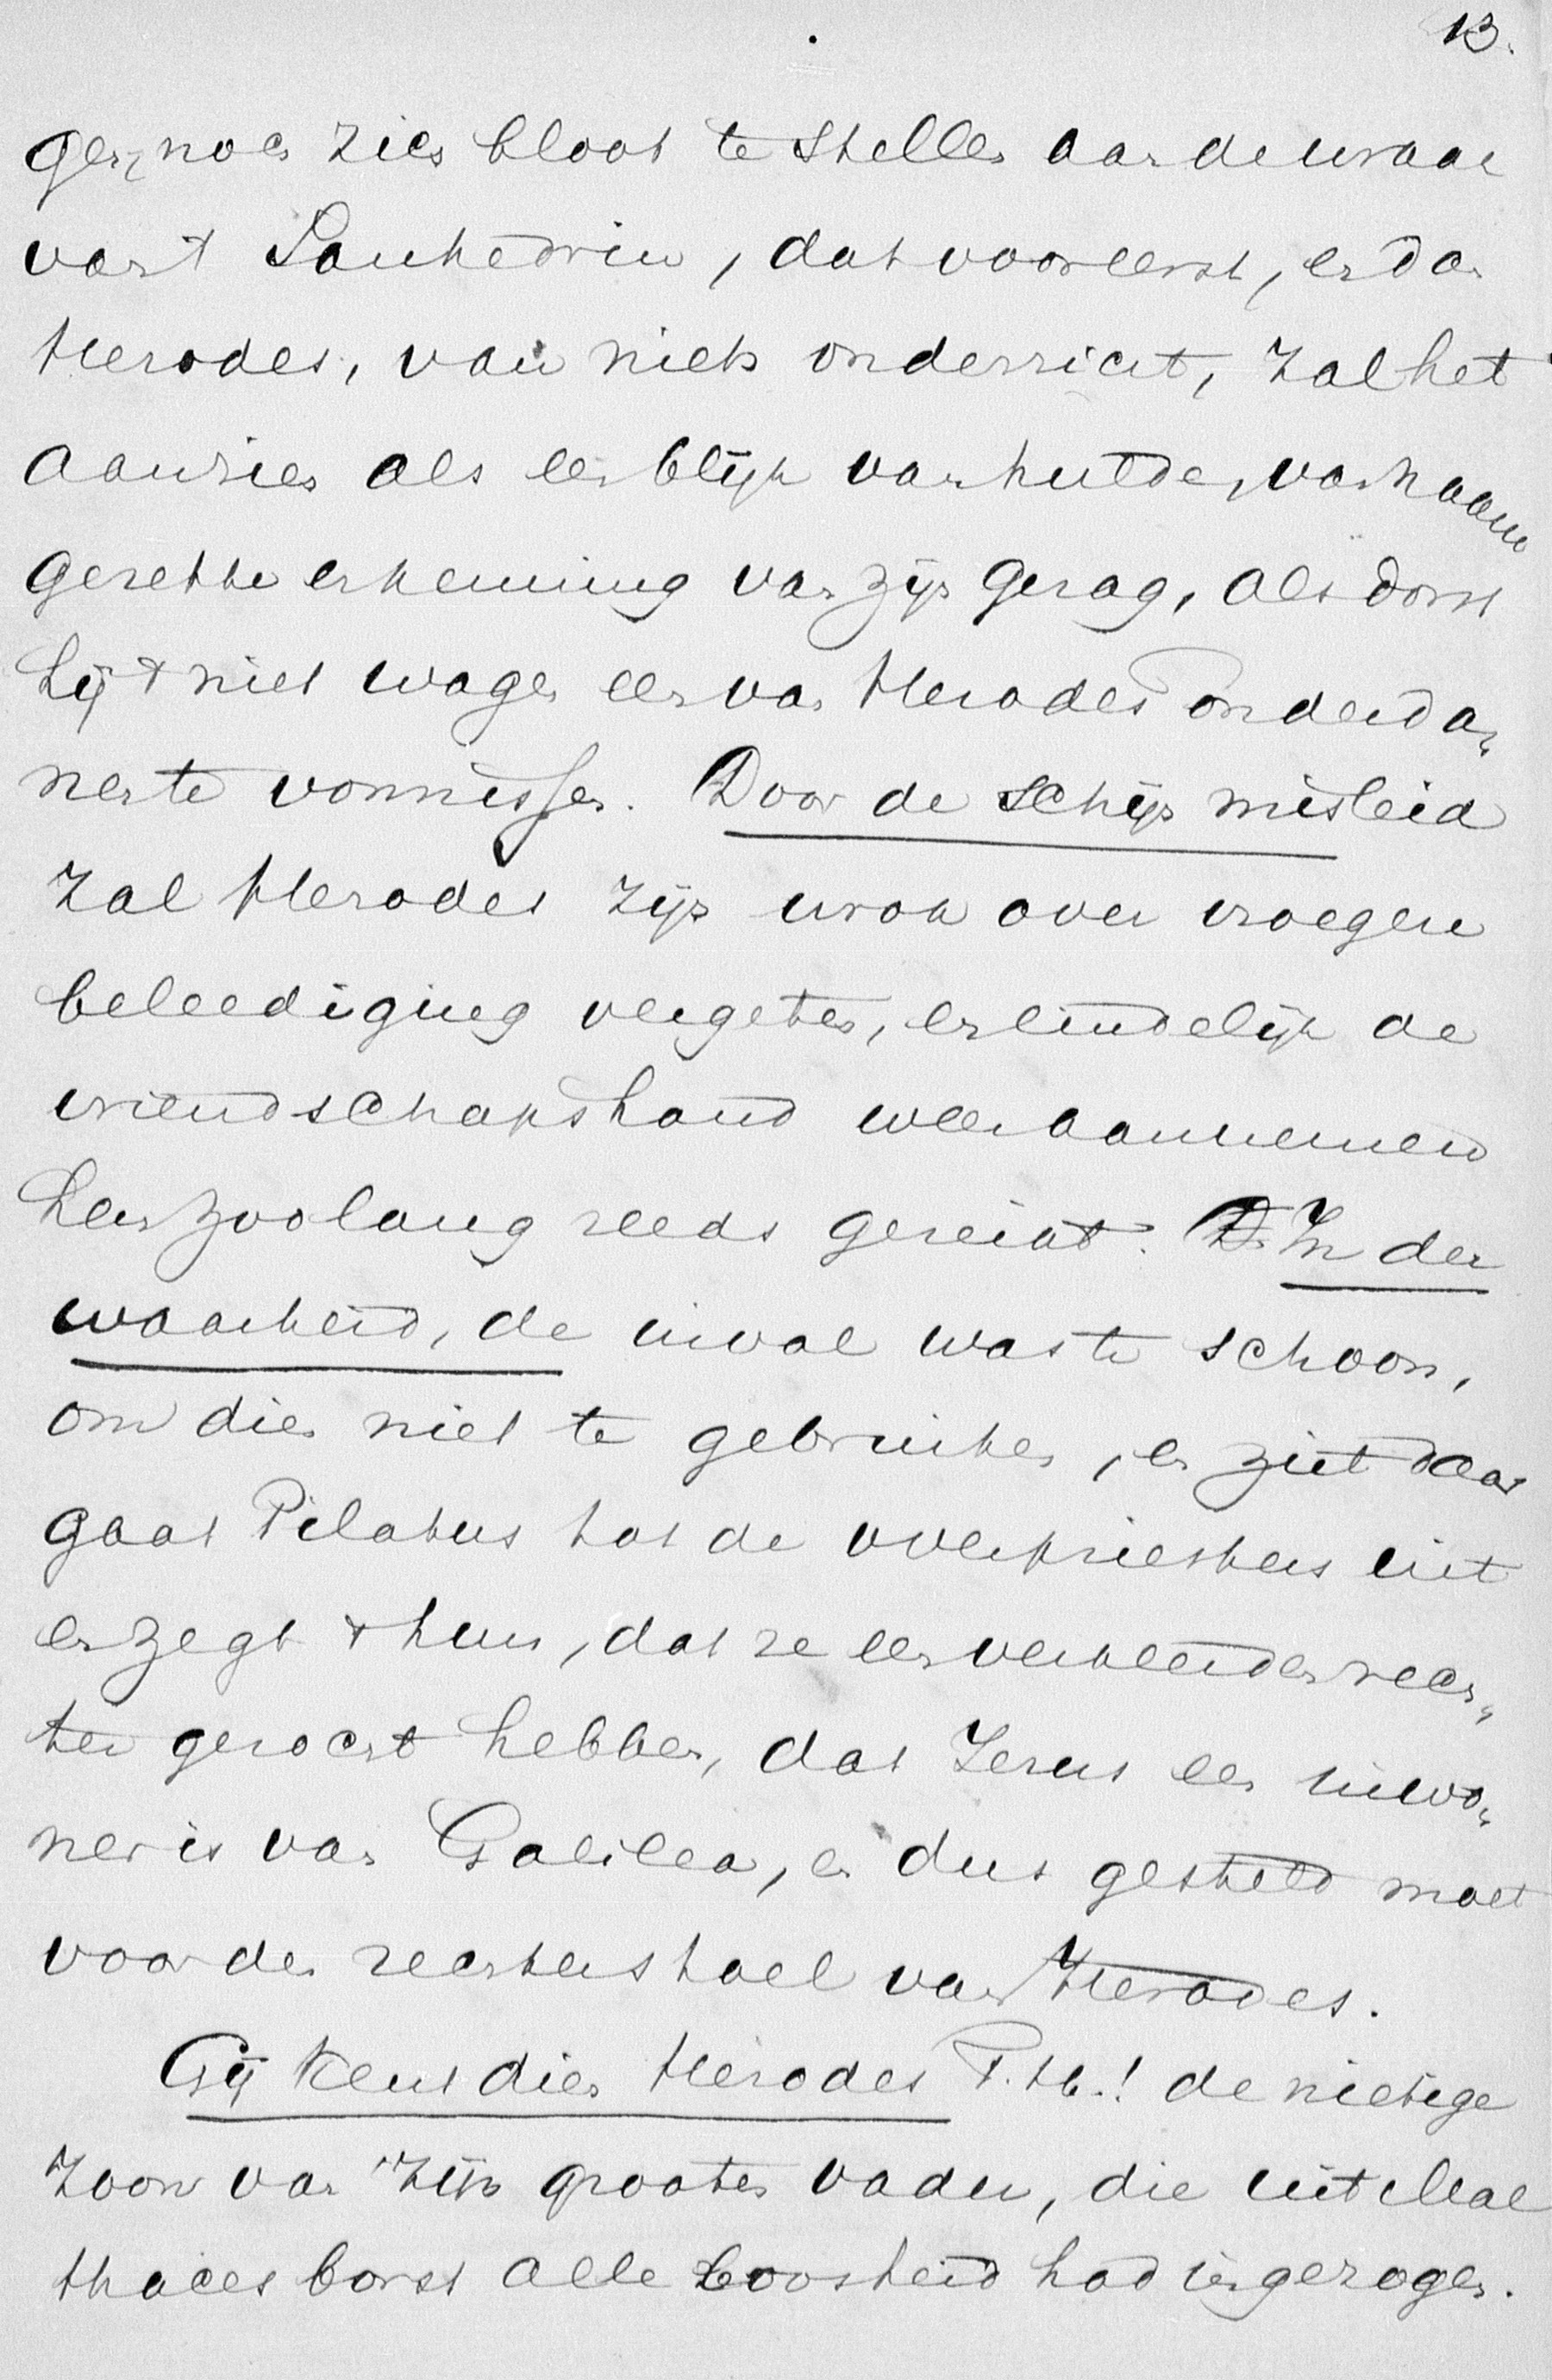 13.
gen, noch zich bloot te stellen aan de wraak
van 't Sanhedrin, dat vooreerst, en dan
Herodes, van niets onderricht, zal het
aanzien als een blijk van hulde, van naauw
gezette erkenning van zijn gezag, als dorst
hij 't niet wagen een van Herodes onderda„
nen te vonnissen. Door de schijn misleid
zal Herodes zijn wrok over vroegere
beleediging vergeten, en eindelijk de
vriendschapshand weer aannemen
hem zoolang reeds gereikt. D. In der
waarheid, de inval was te schoon,
om dien niet te gebruiken, en ziet daar
gaat Pilatus tot de overpriesters uit
en zegt 't hun, dat ze een verkeerden rech„
ter gezocht hebben, dat Jezus een inwo„
ner is van Galilea, en dus gesteld moet
voor den rechterstoel van Herodes.
Gij kent dien Herodes T. H.! de nietige
zoon van zijn grooten vader, die uit Mal
thaces borst alle boosheid had ingezogen.